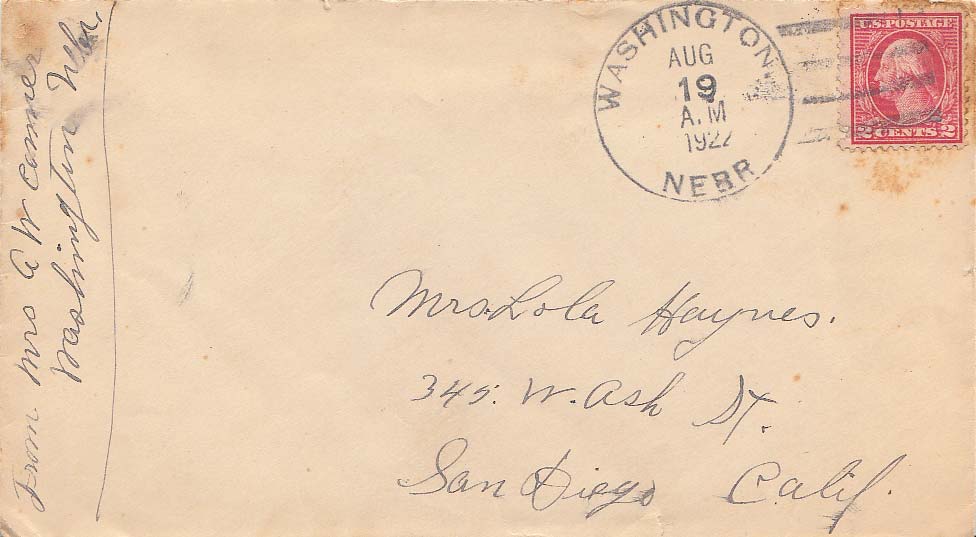 From Mrs A W Conner
Washington Nebr.
WASHINGTON.
AUG
19
A.M
1922
NEBR
U.S. POSTAGE
2 CENTS 2
Mrs. Lola Haynes.
345. W. Ash St.
San Diego Calif.